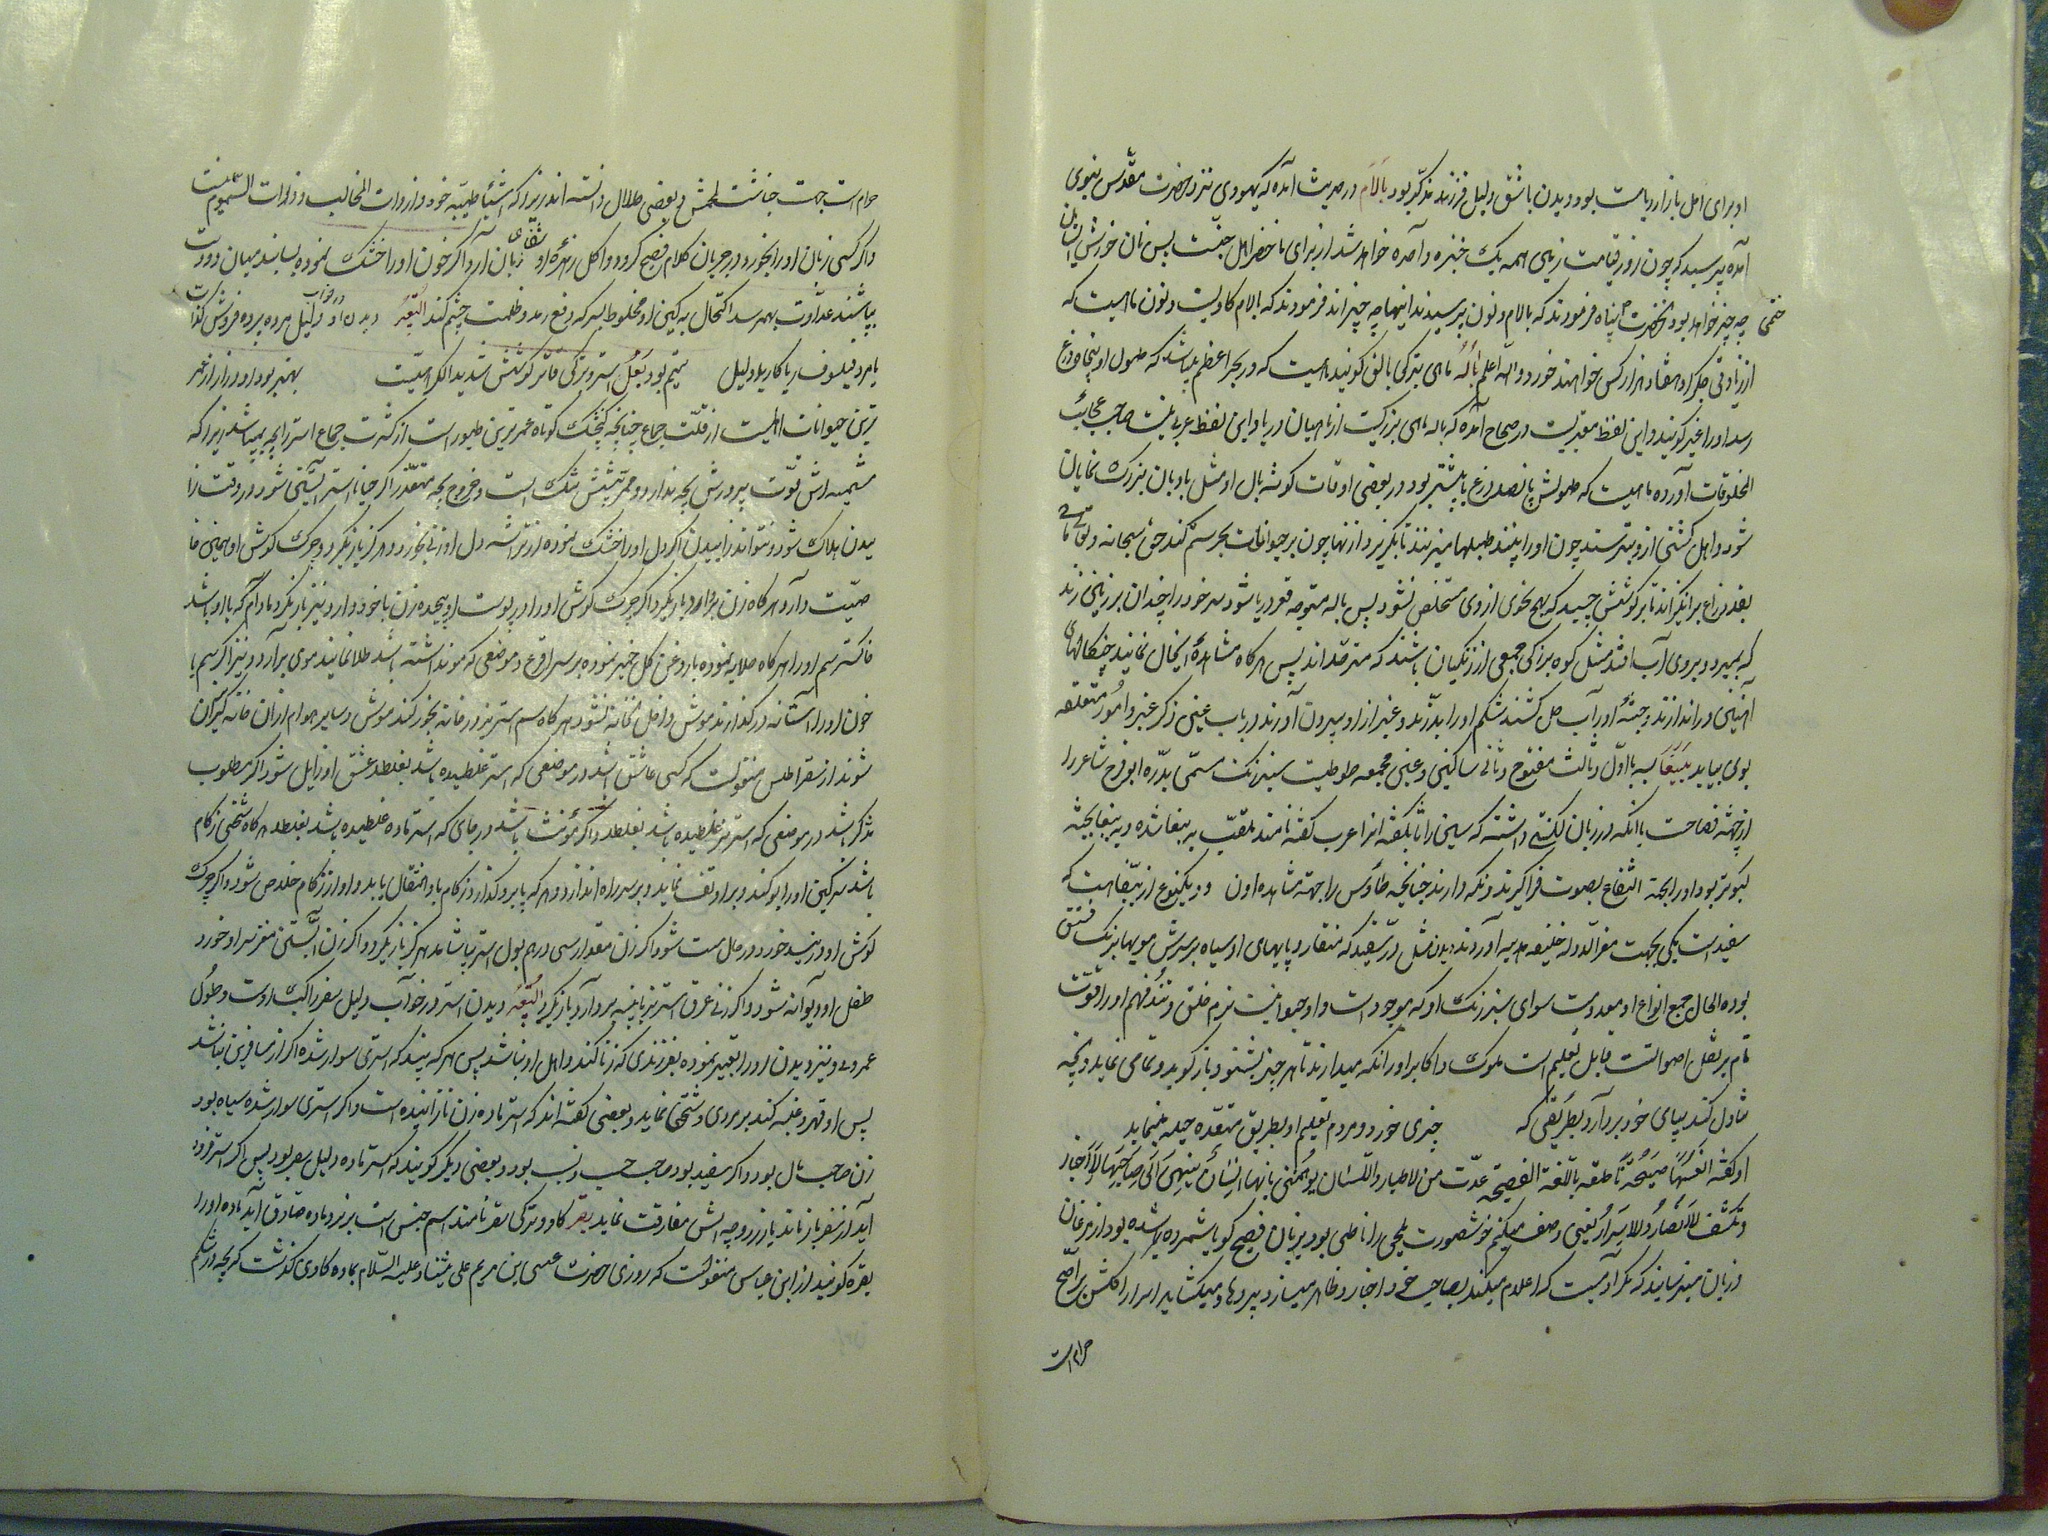 او برای اهل بازار ریاست بود و دیدن باشق دلیل فرزند مذکّر بود بالام در حدیث آمده که یهودی نزد حضرت مقدّس نبوی
آمده پرسید که چون روز قیامت زمین همه یک خبزه و آمده خواهد شد از برای ما حضر اهل جنّت پس نان خورش ایشان
چه چیز خواهد بود آنحضرت فرمودند که بالام و نون پرسیدند اینها چه چیز اند فرمودند که بالام کاویست و نون ماهیست که
از زیادتی جگر او هفتاد هزار کس خواهند خورد والله اعلم باله ماهی بترکی بالق گویند ماهیست که در بحر اعظم باشد که طول او پنجاه ذرع
رسد او را عنبر گویند و این لفظ معربست در صحاح آمده که باله ماهی بزرگیست از ماهیان دریا و این لفظ عربی نیست صاحب عجائب
المخلوقات آورده ماهیست که طولش پانصد ذرع یا بیشتر بود در بعضی اوقات گوشه بال او مثل بادبان بزرگ نمایان
شود و اهل کشتی ازو بترسند چون او را بینند طبلها میزنند تا بگریزد از نها چون بر حیوانات بحر ستم کند حق سبحانه و تعالی ماهی
بقدر ذراع برانگیزاند تا بر گوشش چسبد که بهیچ نحوی از وی مستخلص نشود پس باله متوجه قعر دریا شود سر خود را چندان بر زمین زند
که بمیرد و بروی آب افتد مثل کوه بزرکی جمعی از زنگیان باشند که مترصّد اند پس هرگاه مشاهدهٔ اینحال نمایند چنگالهای
آهنین در اندازند و جثهٔ او را بساحل کشند شکم او را بدرّند و عنبر از او بیرون آورند در باب عین ذکر عنبر و امور متعلقه
بوی بیاید ببّغا سه با اوّل و ثالث مفتوح و ثانی ساکنین و غین معجمه طوطیست سبز رنگ مسمّی بدرّه ابو فرج شاعر را
از جهة فصاحت با آنکه در زبان لکنتی داشته که سین را ثا بگفته انرا عرب لفته نامند بلقب به ببغا شده و ببغا بجثه
کبوتر بود او را بجهة انتفاع بصوت فرا گیرند و نگه دارند چنانچه طاوس را جهة مشاهده لون و دیکنوع از ببّغا هست که
سفید است یکی بجهت معزّ الدوله خلیفه هدیه آورده بودند مثل درّ سفید که منقار و پایهای او سیاه بر سرش مویها برنک فستق
بوده الحال جمیع انواع او معدومست سوای سبز رنگ او که موجود است و او حیوانیست نرم خلق و تند فهم او را قوتت
تام بر نقل اصواتست قابل تعلیم است ملوک و اکابر او را نگه میدارند تا هر چیز بشنود باز گوید و تمامی نماید و نچه
تناول کند بپای خود بردارد بطریقی که چیزی خورد و مردم تعلیم او بطریق متعدّده حیله مینماید
او گفته الفتها صبیحة ناطقه باللغة الفصیحه عدّت من الاطیار واللسان یوهمنی بانها انسان ینهی الی صاحبها الاخبار
وتکشف الاستار والاسرار یعنی وصف میکنم خوشصورت ملیحی را ناطق بود بزبان فصیح گویا شمرده شده بود از مرغان
و زبان میترساند که مگر آدمیست که اعلام میکند بصاحب خود اخبار و ظاهر میسازد پردها و میکشاید اسرار را
حرام است
حرام است جهت خباثت لحمش و بعضی حلال دانسته اند زیرا که اشیاء طیّبه خورد و از ذوات المخالب و ذوات السّموم نیست
و اگر کسی زبان او را بخورد در جریان کلام فصیح گردد و اکل زهرهٔ او شفای زبان آرد اگر خون او را خشک نموده بسایند میان دو دوست
بپاشند عداوت بهمرسد اکتحال سرگین او مخلوط بسرکه دفع رمد و ظلمت چشم کند التعبیر دیدن او در خواب دلیل برده فروش کذاب
یا مرد فیلسوف یا ریا کار یا دلیل یتیم بود بغل استر و ترکی قاتر گوشتش شدید الکراهیتست بهتر بود او دراز عمر
ترین حیوانات اهلیست از قلّت جماع چنانچه گنجشک کوتاه عمر ترین طیور است از کثرت جماع استر را بچه نمیباشد زیرا که
مشیمه اش قوّت پرورش بچه ندارد و ممرّ تنفسش تنگ است و خروج بچه متعذّر اگر احیانا استر آبستن شود در وقت زا
ییدن هلاک شود و نتواند زاییدن اگر دل او را خشک نموده از تراشه دل او زنی بخورد هرگز بار نگیرد و چرک گوش او همین خا
صیت دارد هر گاه زن بردارد بار نگیرد اگر چرک گوش او را در پوست او پیچیده زن با خود دارد نیز بار نگیرد مادام که با او باشد
خاکستر سم او را هر گاه صلایه نموده با روغن گل خمیر نموده بر سر اقرع و موضعی که مو نداشته باشد طلا نمایند موی برآرد و نیز اگر سم یا
خون او را در آستانه در گذارند موش داخل خانه نشود هرگاه سم استر نر در خانه بخور کنند موش و سایر هوام از ان خانه گریزان
شوند از سقراطس منقولست که کسی عاشق باشد در موضعی که استر غلطیده باشد بغلطد عشق او زایل شود اگر مطلوب
مذکر باشد در موضعی که استر نر غلطیده باشد بغلطد و اگر مؤنث باشد در جای که استر ماده غلطیده باشد بغلطد هرگاه شخصی زکام
باشد سرگین او را بو کند و براو تف نماید و بر سر راه اندازد و هر که پا برو گذارد زکام باو انتقال یابد و او از زکام خلاص شود و اگر چرک
گوش او در نبیذ خورد در حال مست شود اگر زن مقدار سی درهم بول استر بیاشامد هرگز بار نگیرد و اگر زن آبستن مغز سر او خورد
طفل او دیوانه شود و اگر زنی عرق استر نر با پنبه بردارد بار نگیرد التعبیر دیدن استر در خواب دلیل سفر راکب اوست و طول
عمر وی و نیز دیدن او را تعبیر نموده بفرزندی که زنا کند و اهل او نباشد پس هر که بیند که استری سوار شده اگر از مسافرین نباشد
پس او قهر و غلبه کند بر مردی و شتی نماید و بعضی گفته اند که استر ماده زن نازاینده است و اگر استری سوار شده سیاه بود
زن صاحب مال بود و اگر سفید بود صاحب حسب و نسب بود و بعضی دیگر گویند که استر ماده دلیل سفر بود پس اگر استر فرود
آید از سفر باز ماند یا از زوجه اش مفارقت نماید بقر گاو و ترکی سقر نامند اسم جنس است بر نر و ماده صادق آید ماده او را
بقره گویند از ابن عباس منقولست که روزی حضرت عیسی ابن مریم علی نبیّنا و علیه السّلام بماده گاوی گذشت که بچه در شکم